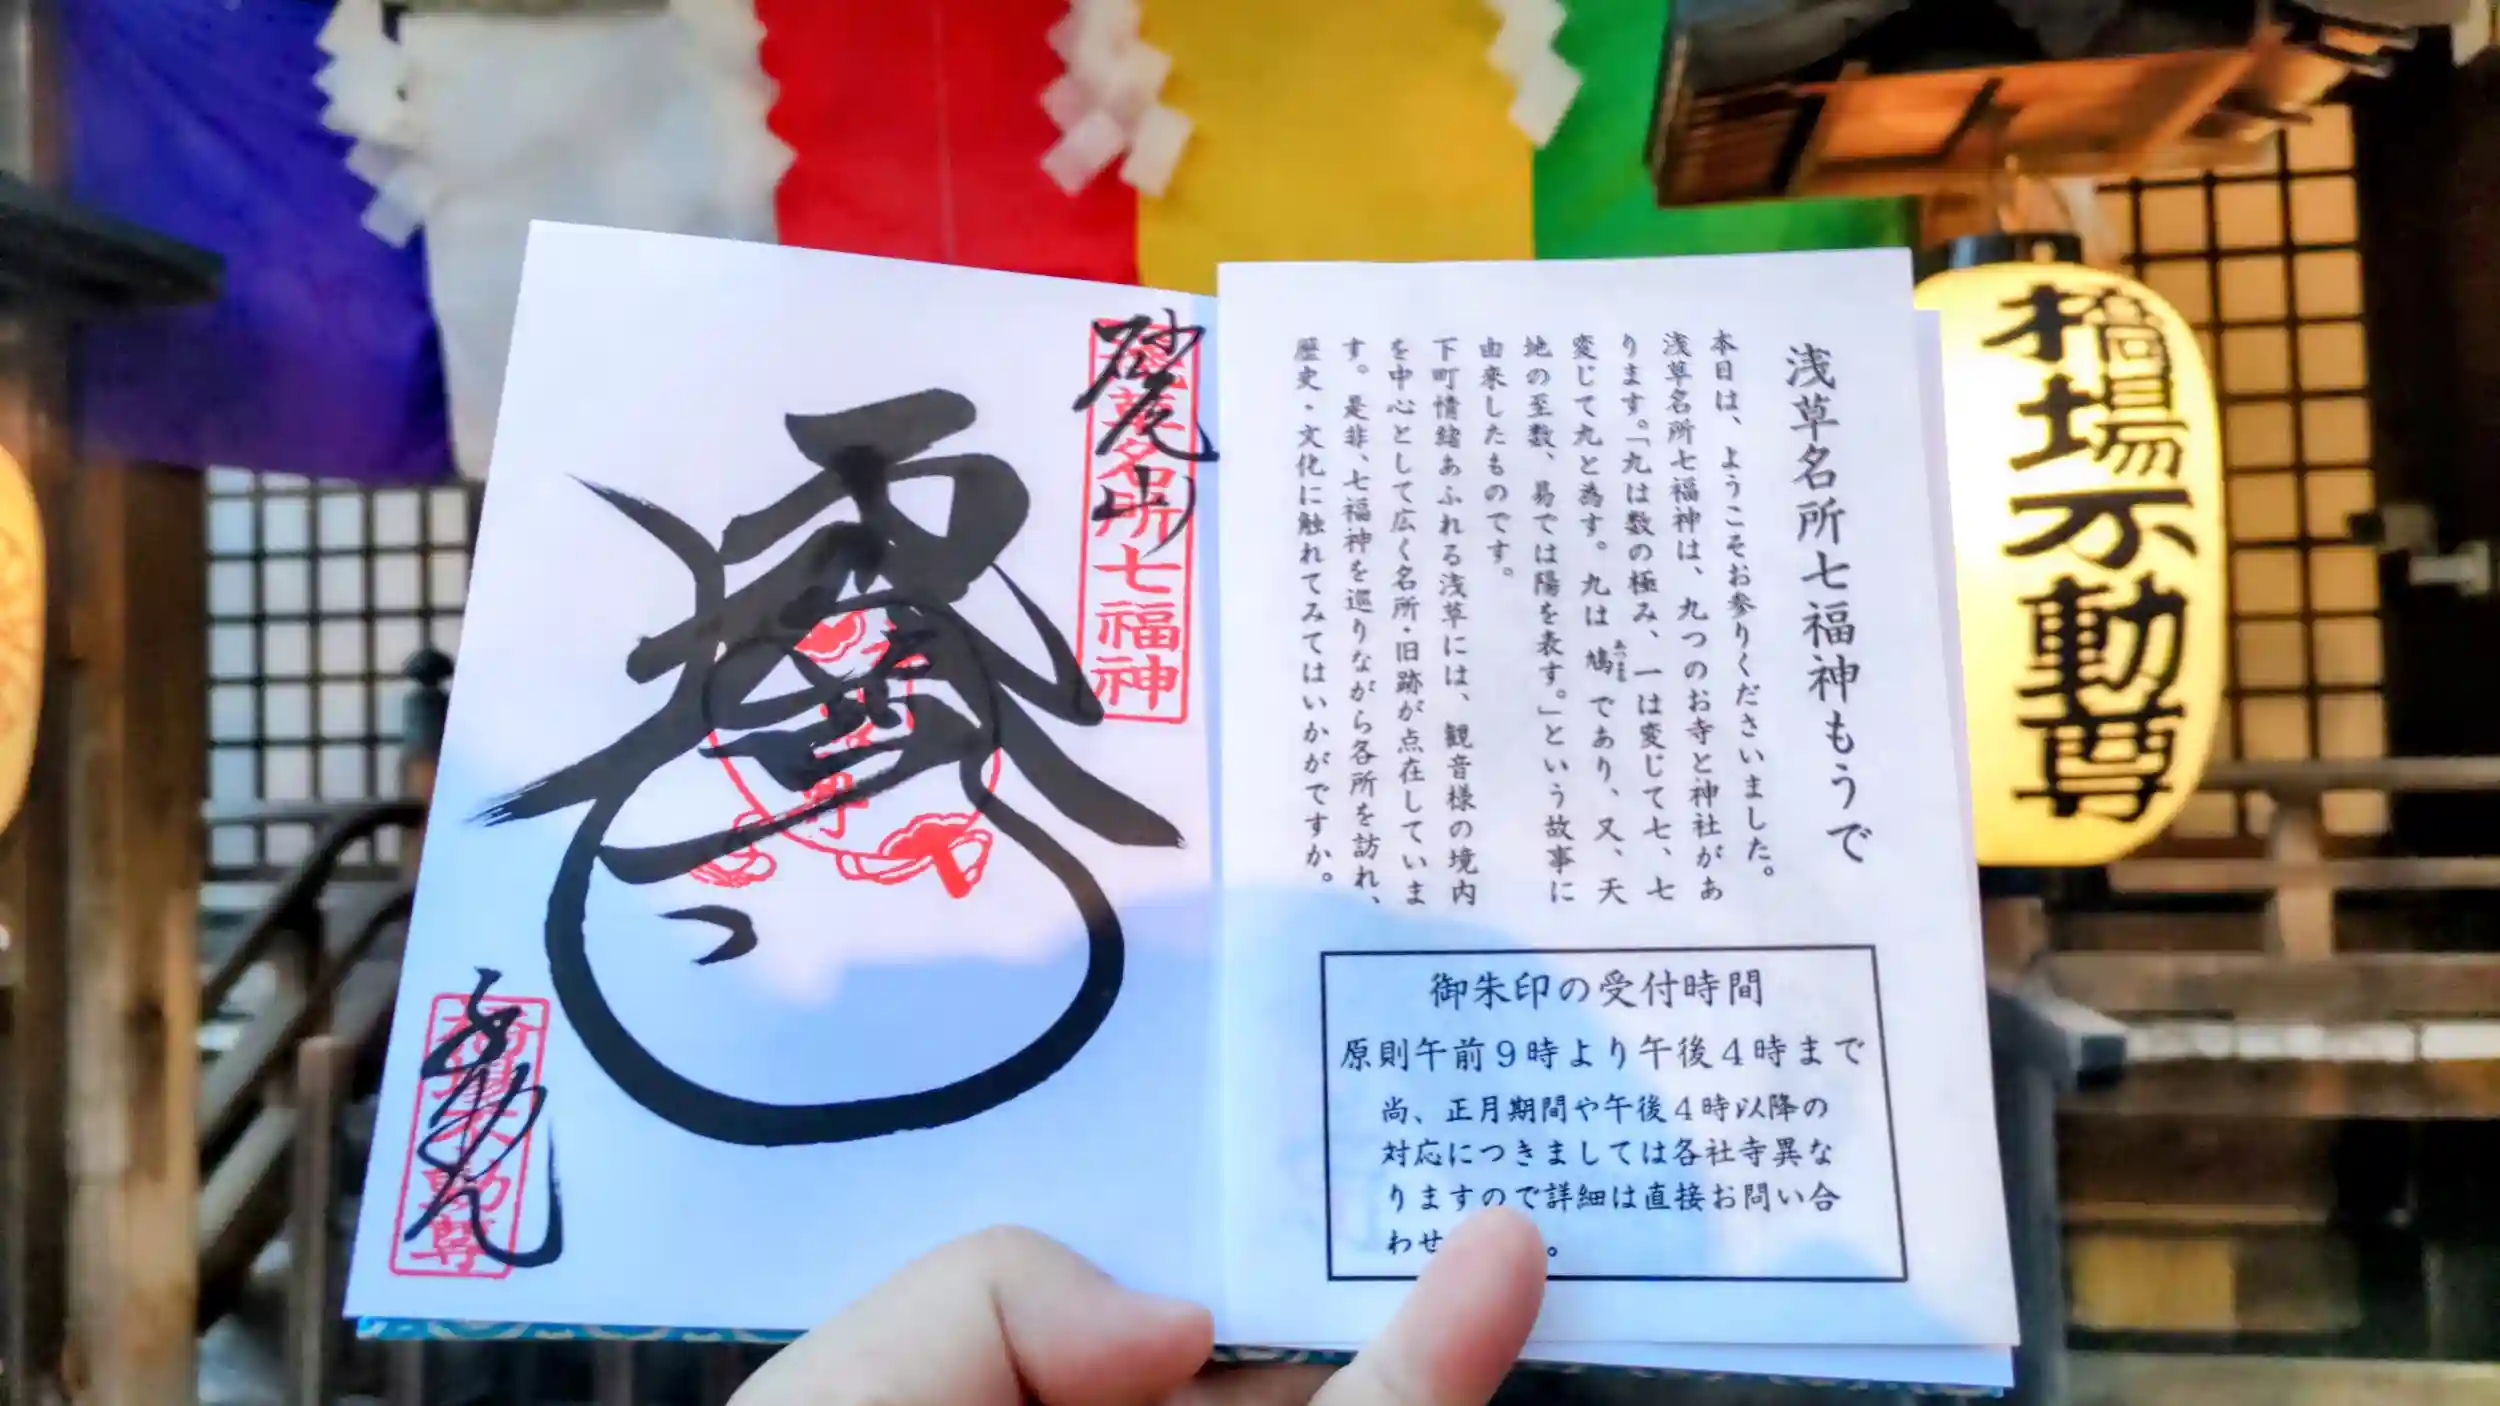 浅草名所七福神もうで
本日は、ようこそお参りくださいました。
浅草名所七福神は、九つのお寺と神社があ
ります。「九は数の極み、一は変じて七、七
変じて九と為す。九は鳩であり、又、天
地の至数、易では陽を表す。」という故事に
由来したものです。
下町情緒あふれる浅草には、観音様の境内
を中心として広く名所・旧跡が点在していま
す。是非、七福神を巡りながら各所を訪れ、
歴史・文化に触れてみてはいかがですか。
御朱印の受付時間
原則午前9時より午後4時まで
尚、正月期間や午後4時以降の
対応につきましては各社寺異な
りますので詳細は直接お問い合
わせ
砂尾山
浅草名所七福神
橋場不動尊
橋場不動尊